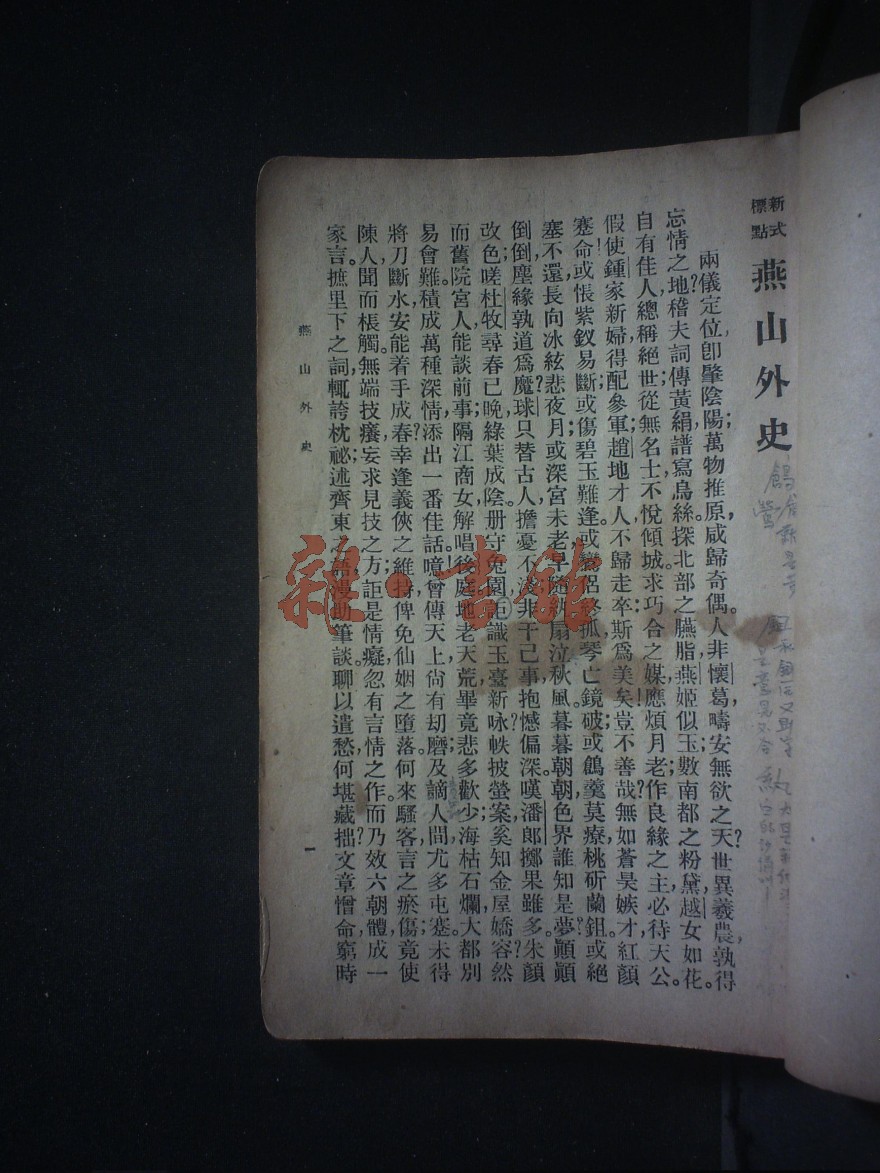 新式標點 燕山外史
兩儀定位卽肇陰陽;萬物推原,咸歸奇偶。人非懷葛,疇安無欲之天?世異羲農,孰得
忘情之地?稽夫詞傳黃絹,譜寫烏絲。探北部之臙脂,燕姬似玉;數南都之粉黛,越女如花。
自有佳人,總稱絕世;從無名士,不悅傾城。求巧合之媒,應煩月老;作良緣之主,必待天公。
假使鍾家新婦,得配參軍;趙地才人,不歸走卒。斯爲美矣!豈不善哉?無如蒼昊嫉才,紅顏
蹇命!或悵紫釵易斷;或傷碧玉難逢;或鸞侶終孤,琴亡鏡破;或鶬羹莫療,桃斫蘭鉏;或絕
塞不還,長向冰絃悲夜月;或深宮未老,早隨紈扇泣秋風。暮暮朝朝,色界誰知是夢?顚顚
倒倒,塵緣孰道爲魔?球只替古人擔憂,不淺非干己事,抱憾偏深?嘆潘郎擲果雖多,朱顏
改色;嗟杜牧尋春已晚,綠葉成陰。册守兔園,詎識玉臺新咏;帙披螢案,奚知金屋嬌容?然
而舊院宮人,能談前事;隔江商女,解唱後庭。地老天荒,畢竟悲多歡少;海枯石爛,大都別
易會難。積成萬種深情,添出一番佳話。噫!曾傳天上,尙有刧磨;及謫人間,尤多屯蹇。未得
將刀斷水,安能着手成春?幸逢義俠之維持,俾免仙姻之墮落。何來騷客,言之瘀傷;竟使
陳人,聞而棖觸。無端技癢,妄求見技之方;詎是情癡,忽有言情之作。而乃效六朝體,成一
家言。摭里下之詞,輒誇枕祕;述齊東之語,漫助筆談。聊以遣愁,何堪藏拙?文章憎命,窮時
燕山外史
一
雜·書館